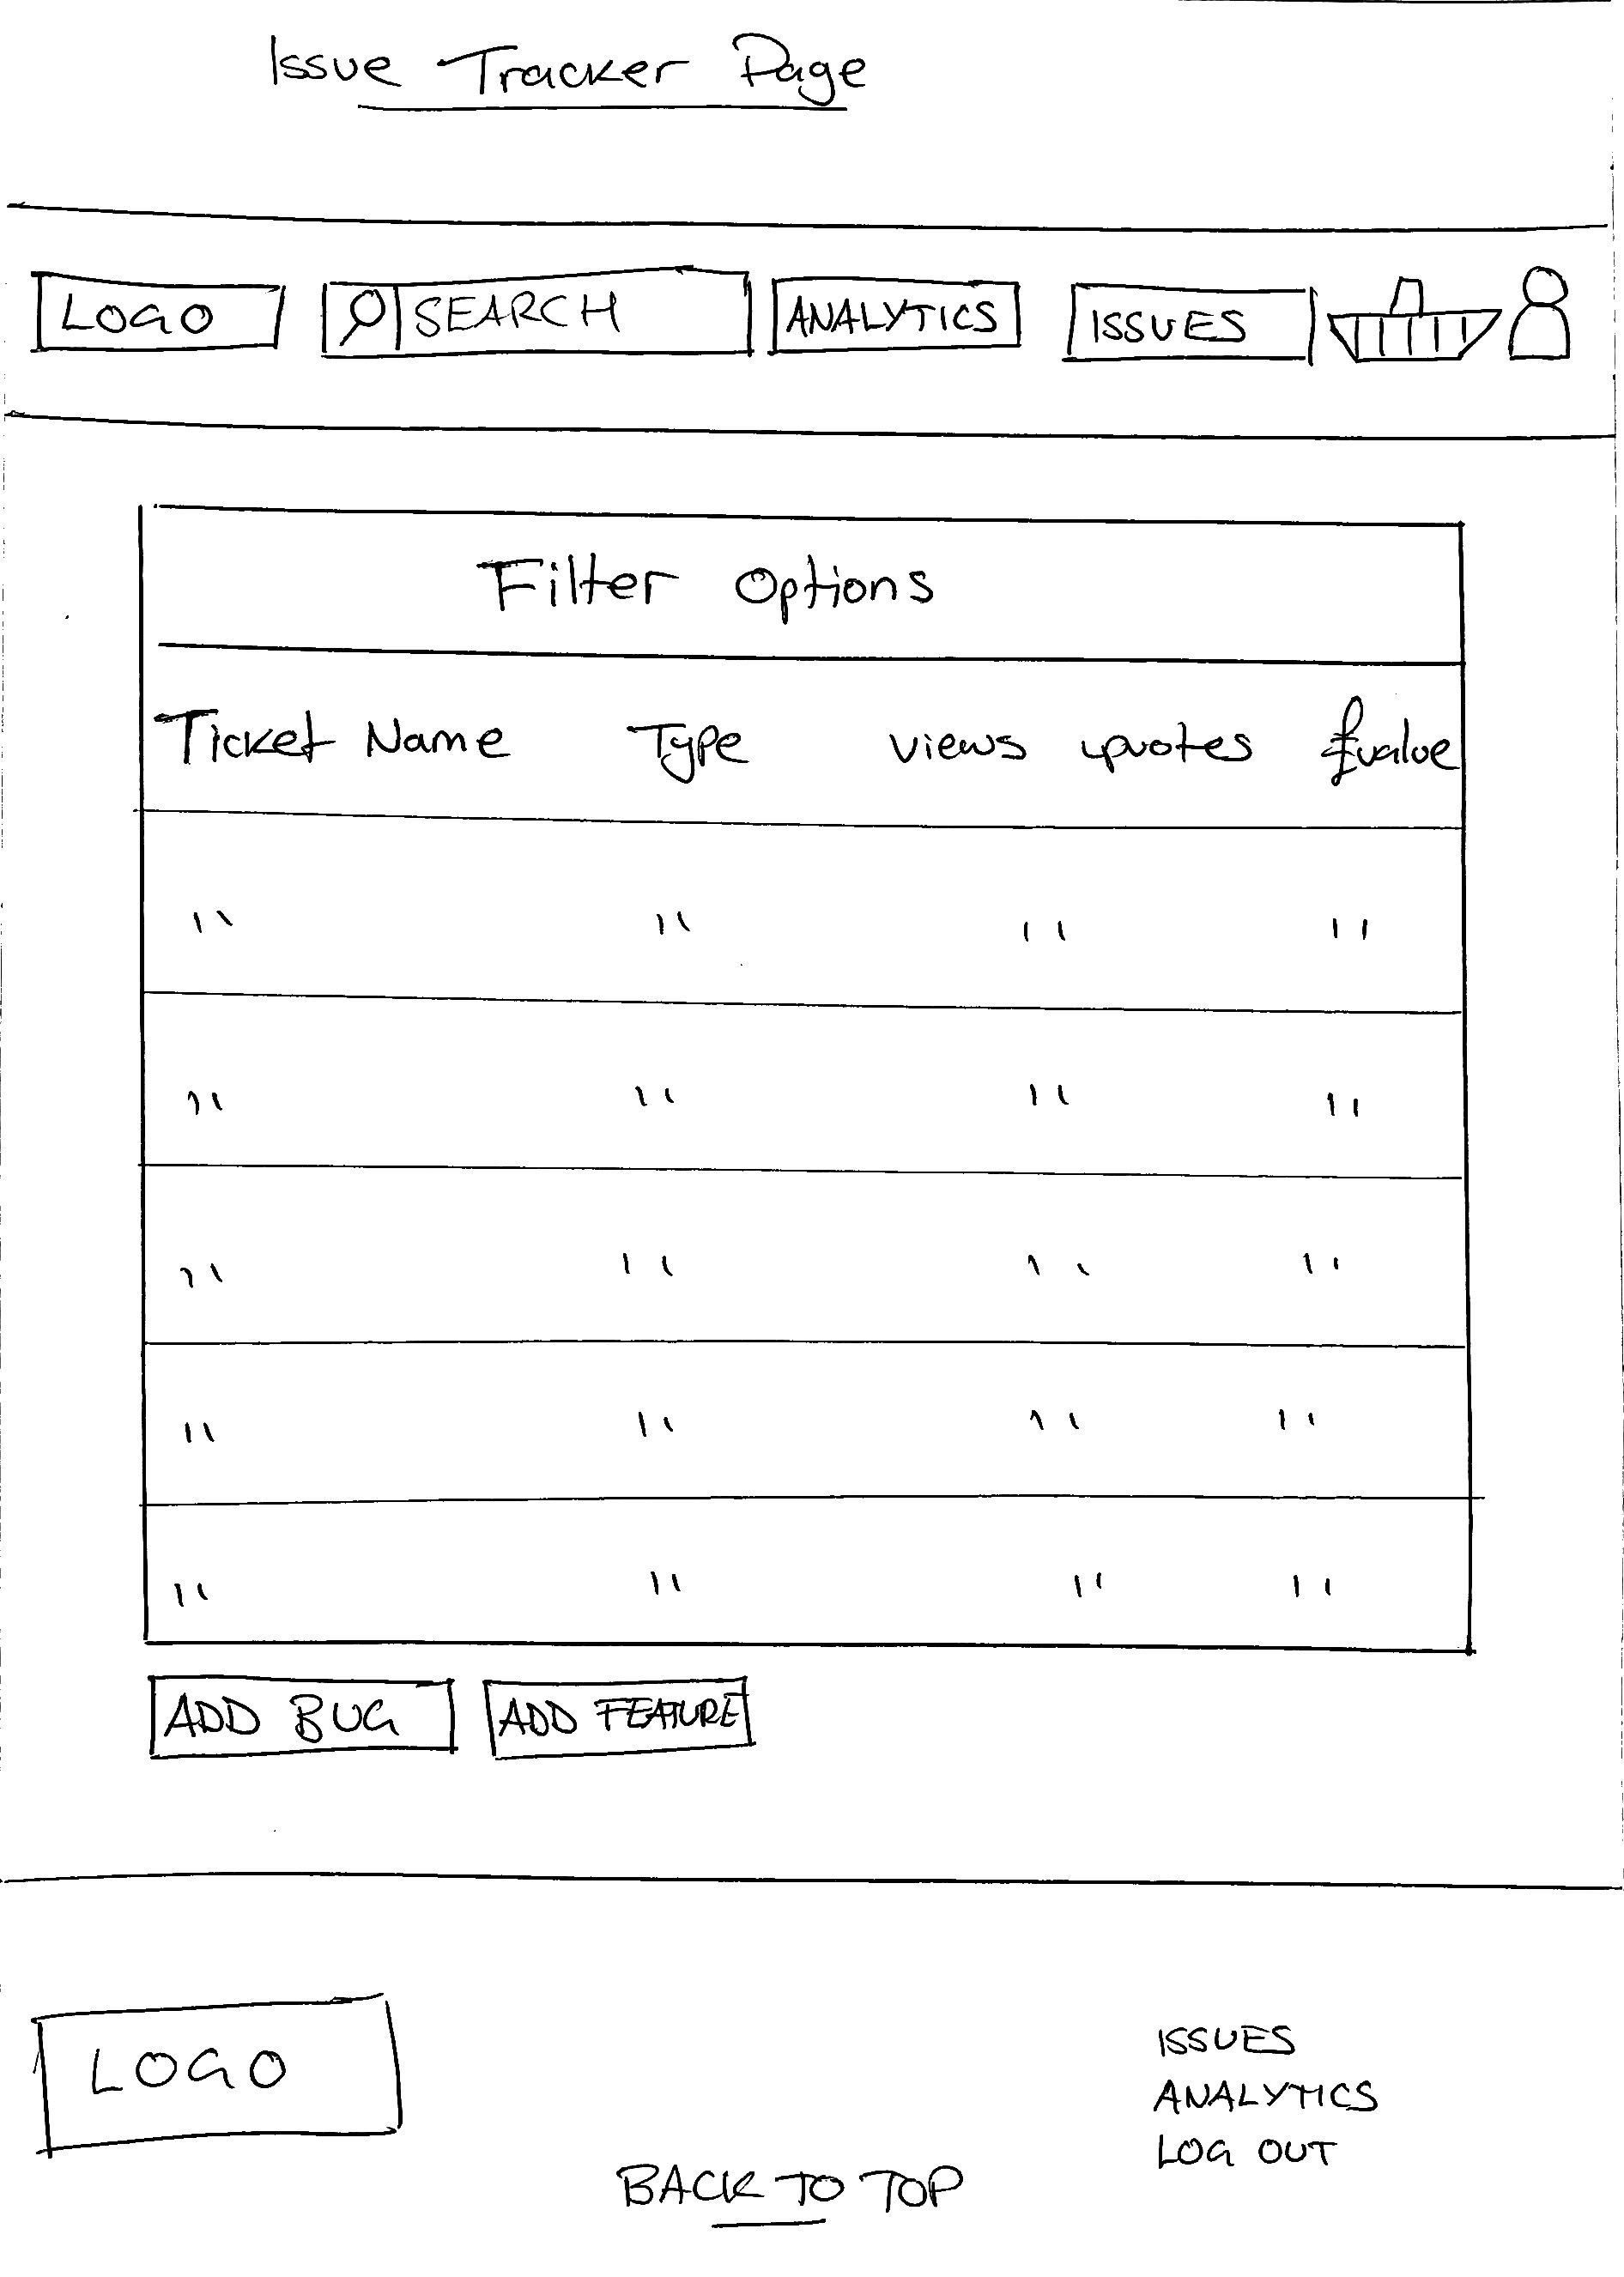 Issue Tracker Page
LOGO SEARCH ANALYTICS ISSUES
Filter Options
Ticket Name Type views upvotes £value
" " " "
" " " "
" " " "
" " " "
" " " "
ADD BUG ADD FEATURE
LOGO
ISSUES
ANALYTICS
LOG OUT
BACK TO TOP